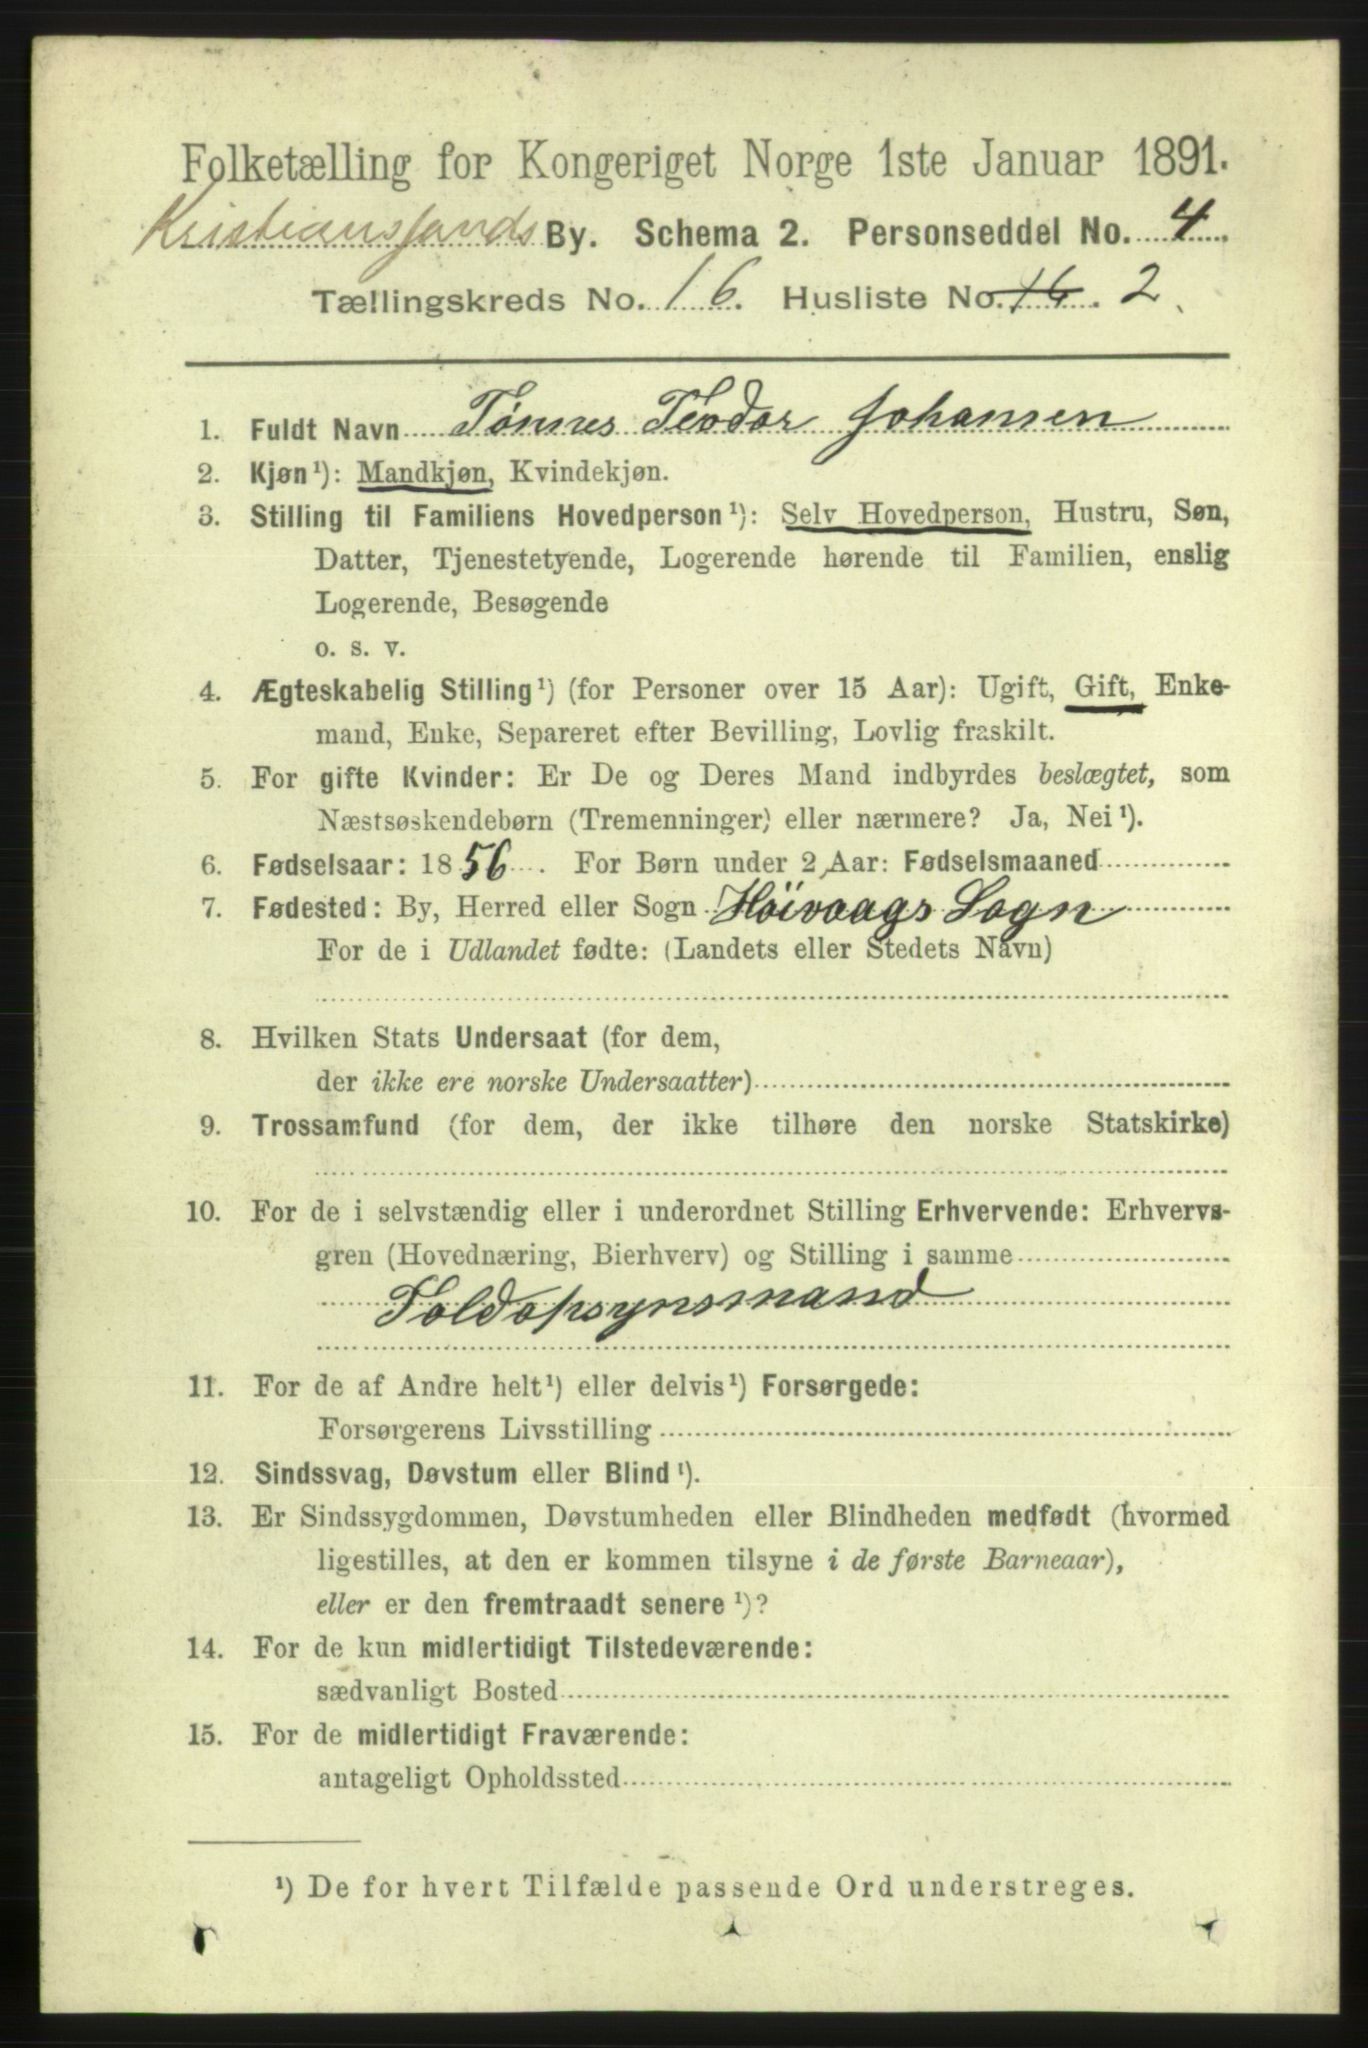 Folketælling for Kongeriget Norge 1ste Januar 1891.
Kristianssands By. Schema 2. Personseddel No. 4
Tællingskreds No. 16. Husliste No. 16. 2
1. Fuldt Navn Tønnes Teodor Johansen
2. Kjøn¹): Mandkjøn, Kvindekjøn.
3. Stilling til Familiens Hovedperson¹): Selv Hovedperson, Hustru, Søn,
Datter, Tjenestetyende, Logerende hørende til Familien, enslig
Logerende, Besøgende
o. s. v.
4. Ægteskabelig Stilling¹) (for Personer over 15 Aar): Ugift, Gift, Enke-
mand, Enke, Separeret efter Bevilling, Lovlig fraskilt.
5. For gifte Kvinder: Er De og Deres Mand indbyrdes beslægtet, som
Næstsøskendebørn (Tremenninger) eller nærmere? Ja, Nei¹).
6. Fødselsaar: 1856. For Børn under 2 Aar: Fødselsmaaned
7. Fødested: By, Herred eller Sogn Höivaags Sogn
For de i Udlandet fødte: (Landets eller Stedets Navn)
8. Hvilken Stats Undersaat (for dem,
der ikke ere norske Undersaatter)
9. Trossamfund (for dem, der ikke tilhøre den norske Statskirke)
10. For de i selvstændig eller i underordnet Stilling Erhvervende: Erhvervs-
gren (Hovednæring, Bierhverv) og Stilling i samme
Toldopsynsmand
11. For de af Andre helt¹) eller delvis¹) Forsørgede:
Forsørgerens Livsstilling
12. Sindssvag, Døvstum eller Blind¹).
13. Er Sindssygdommen, Døvstumheden eller Blindheden medfødt (hvormed
ligestilles, at den er kommen tilsyne i de første Barneaar),
eller er den fremtraadt senere¹)?
14. For de kun midlertidigt Tilstedeværende:
sædvanligt Bosted
15. For de midlertidigt Fraværende:
antageligt Opholdssted
¹) De for hvert Tilfælde passende Ord understreges.